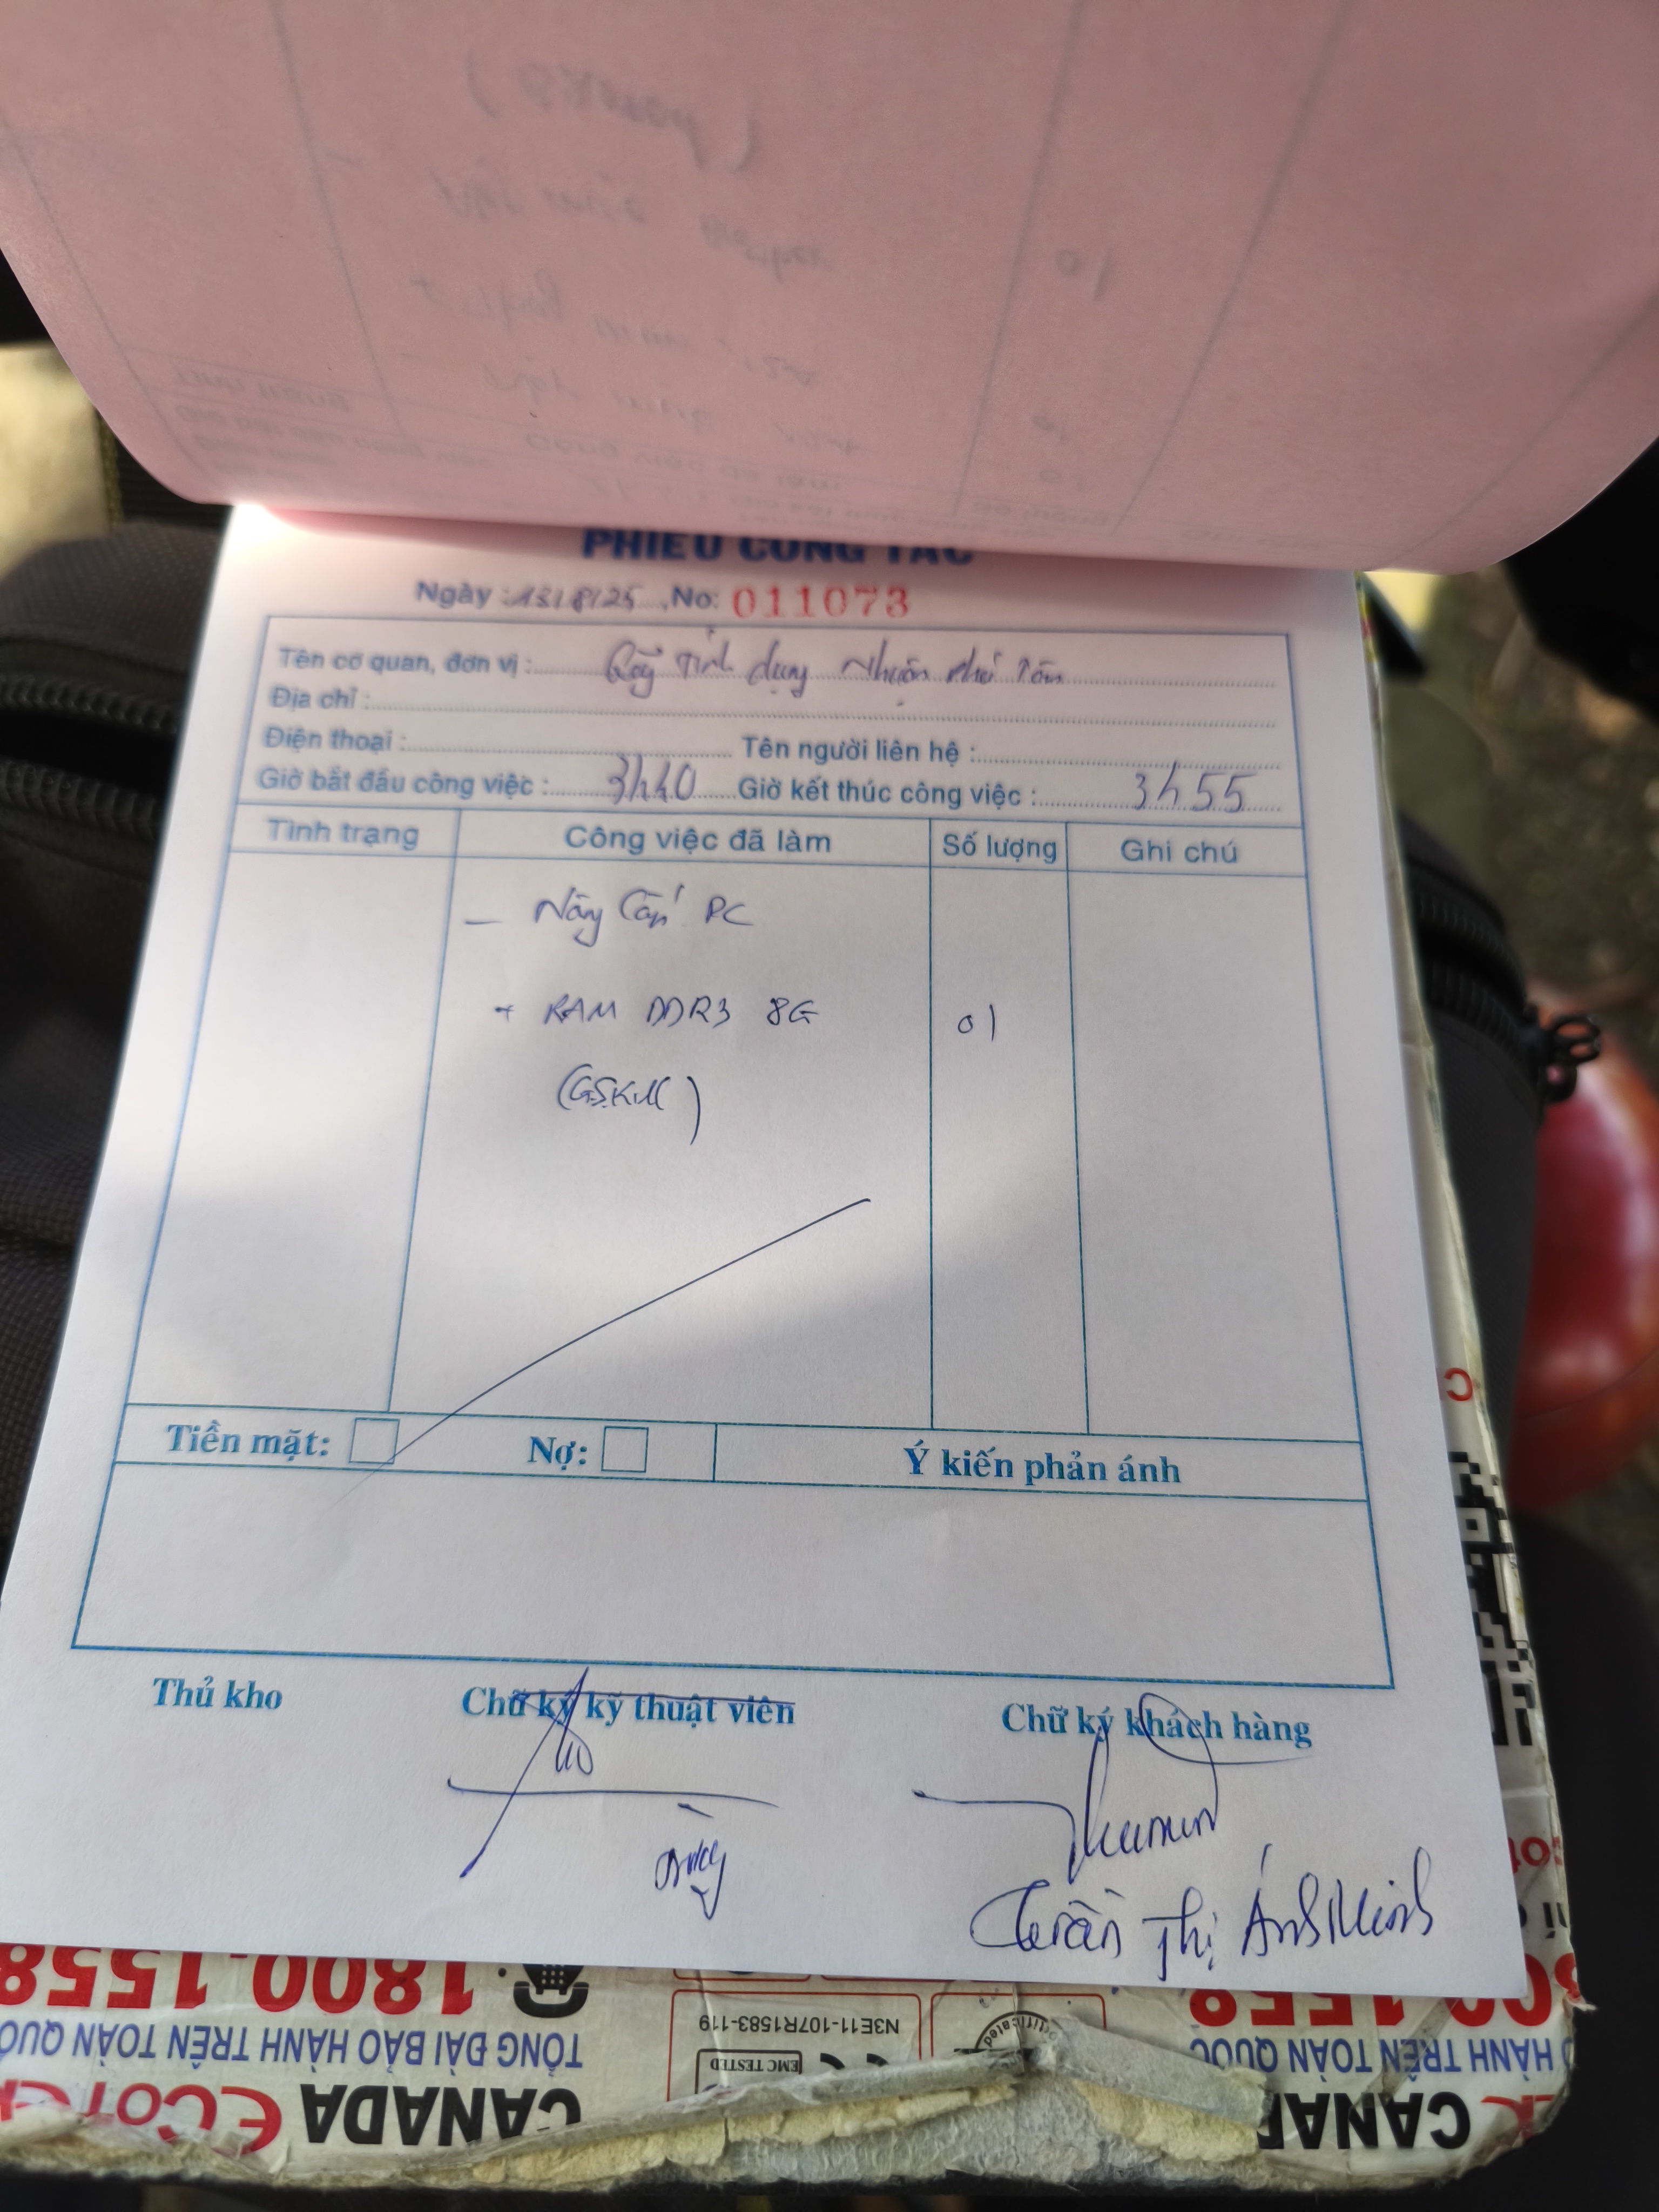 PHIẾU CÔNG TÁC
Ngày : 13/8/25 No: 011073
Tên cơ quan, đơn vị : Quỹ Tín dụng Nhuận Phú Tân
Địa chỉ :
Điện thoại : Tên người liên hệ :
Giờ bắt đầu công việc : 3h40 Giờ kết thúc công việc : 3h55
Tình trạng Công việc đã làm Số lượng Ghi chú
- Nâng Cấp PC
+ RAM DDR3 8G 01
(GSKill)
Tiền mặt: Nợ: Ý kiến phản ánh
Thủ kho Chữ ký kỹ thuật viên Chữ ký khách hàng
Trần Thị Ánh Minh
1800.1558
TỔNG ĐÀI BẢO HÀNH TRÊN TOÀN QUỐC
CANADA ECOTEK
N3E11-107R1583-119
EMC TESTED
HÀNH TRÊN TOÀN QUỐC